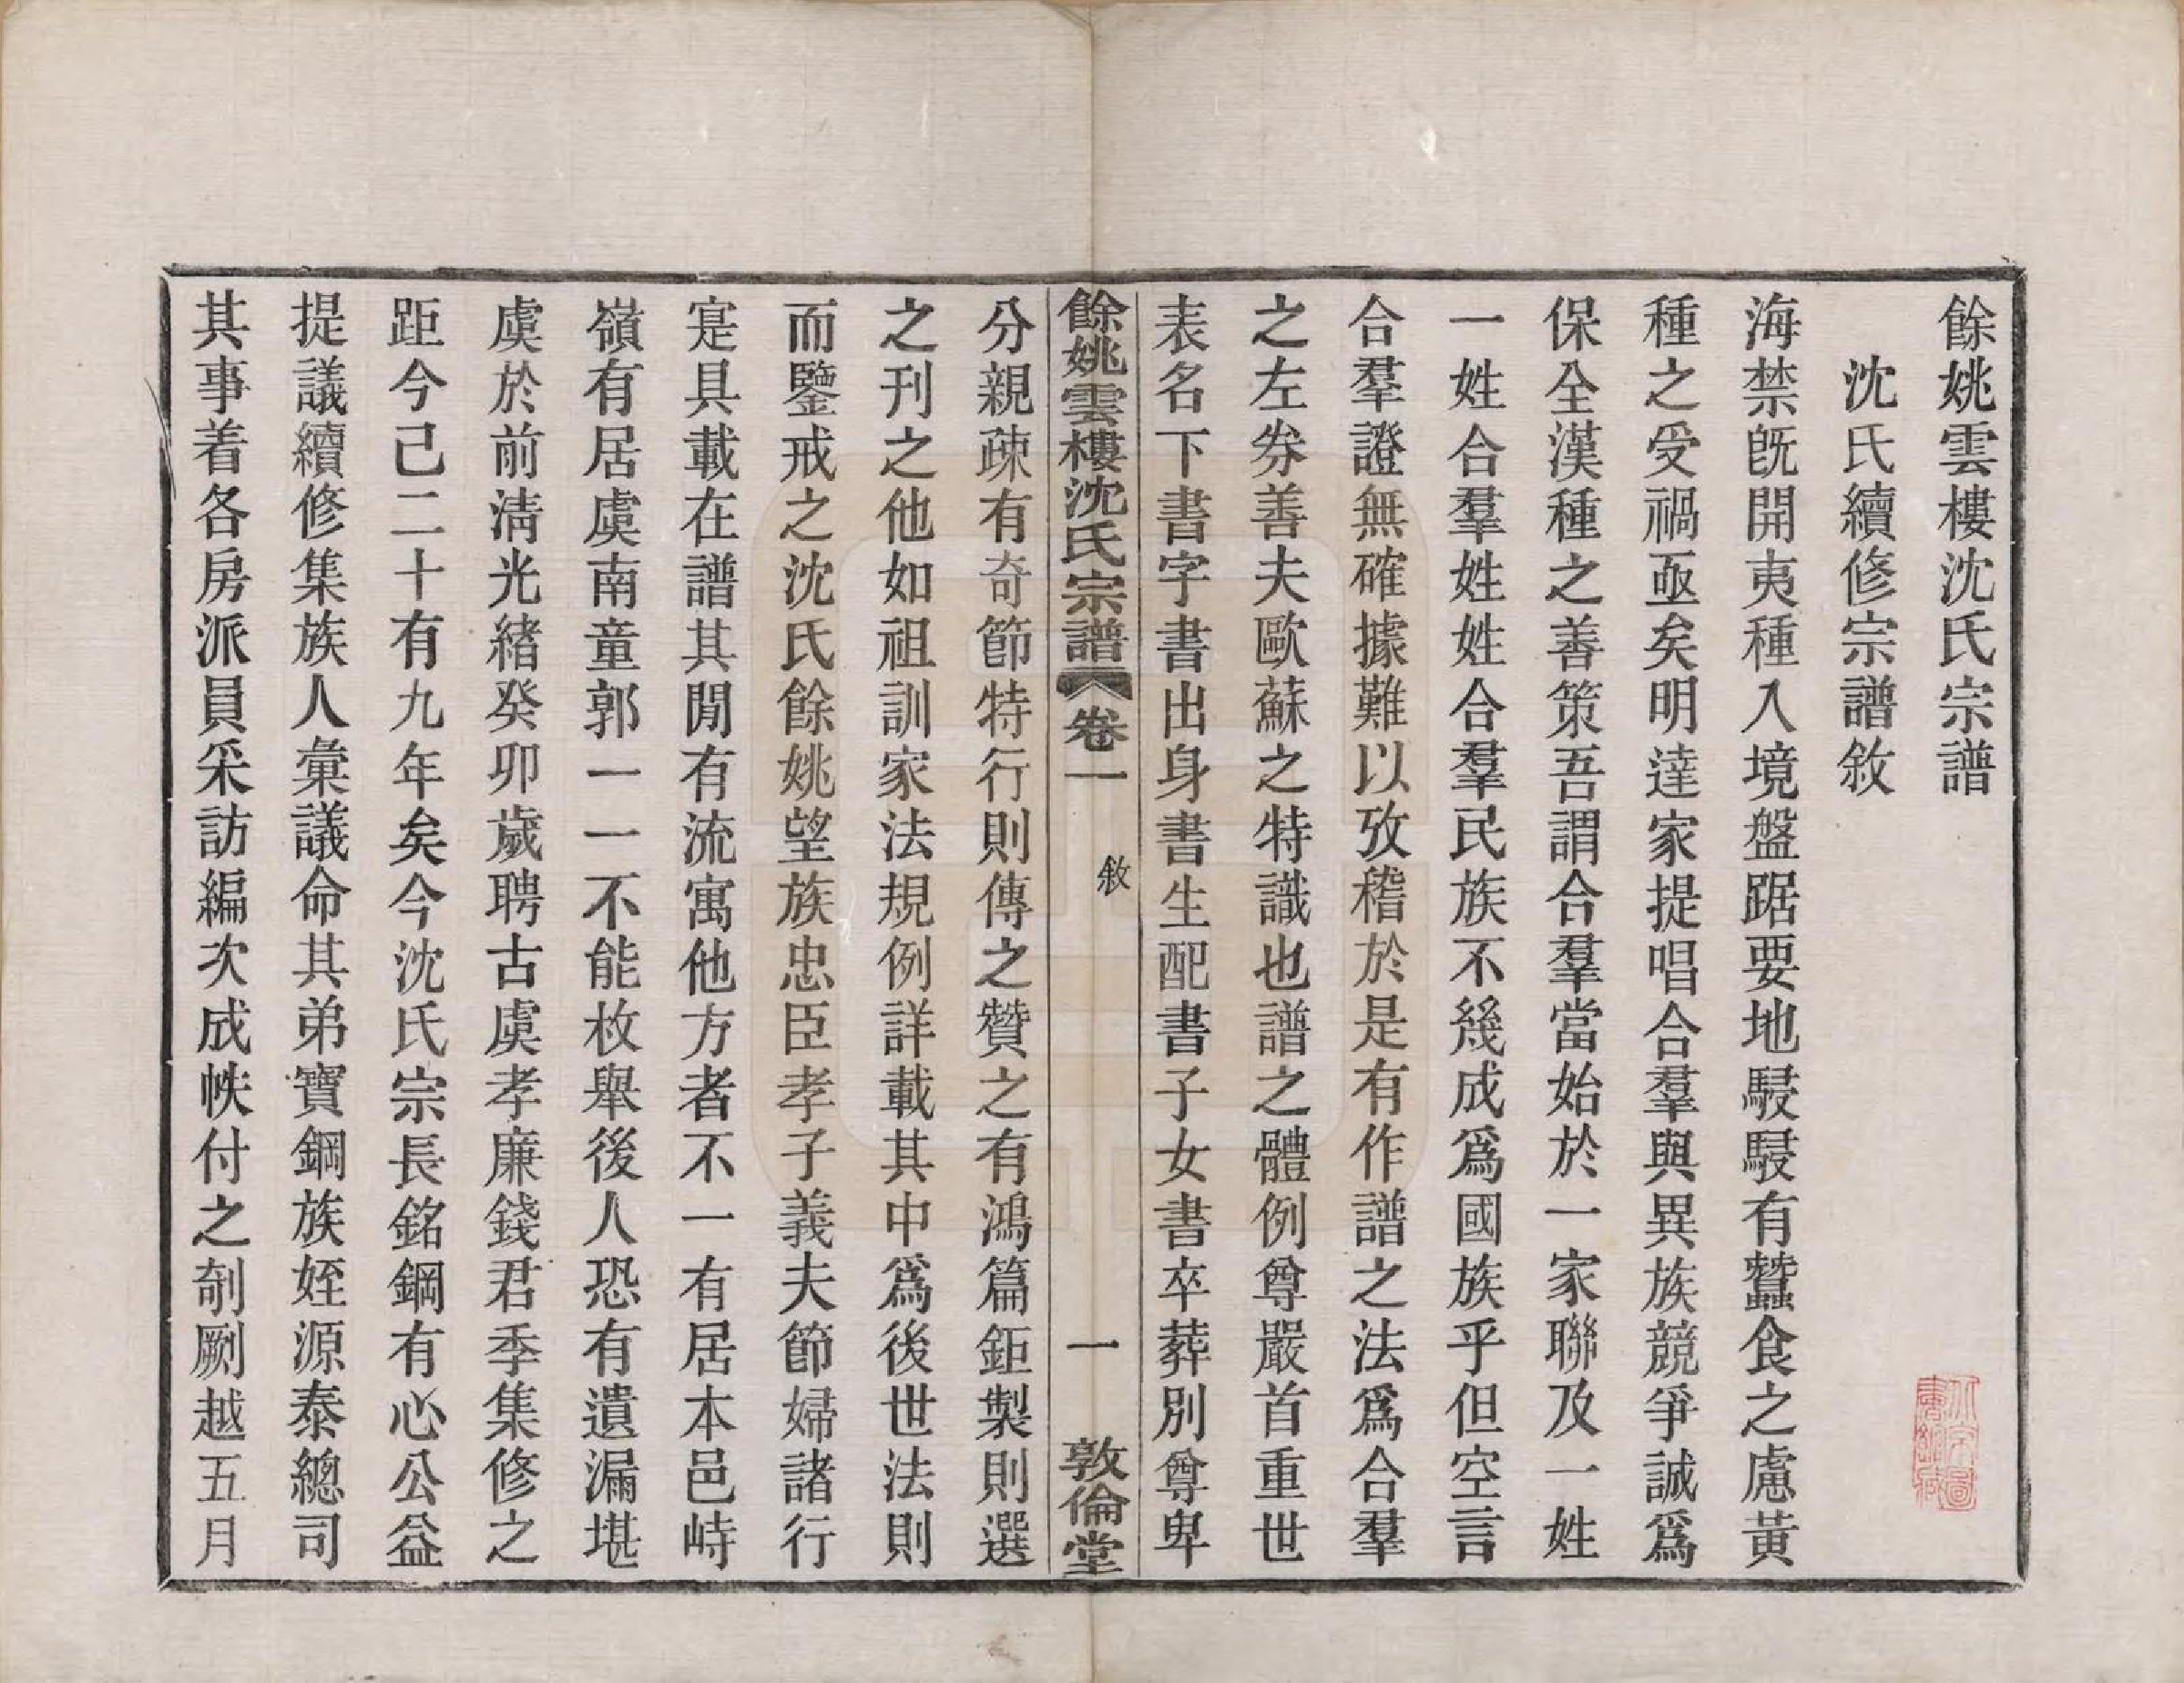 餘姚雲樓沈氏宗譜
沈氏續修宗譜敘
海禁旣開夷種入境盤踞要地駸駸有蠶食之慮黃
種之受禍亟矣明達家提唱合羣與異族競爭誠爲
保全漢種之善策吾謂合羣當始於一家聯及一姓
一姓合羣姓姓合羣民族不幾成爲國族乎但空言
合羣證無確據難以攷稽於是有作譜之法爲合羣
之左券善夫歐蘇之特識也譜之體例尊嚴首重世
表名下書字書出身書生配書子女書卒葬別尊卑
餘姚雲樓沈氏宗譜 卷一 敘 一 敦倫堂
分親疎有奇節特行則傳之贊之有鴻篇鉅製則選
之刊之他如祖訓家法規例詳載其中爲後世法則
而鑒戒之沈氏餘姚望族忠臣孝子義夫節婦諸行
寔具載在譜其閒有流寓他方者不一有居本邑峙
嶺有居虞南童郭一一不能枚舉後人恐有遺漏堪
虞於前淸光緒癸卯歲聘古虞孝廉錢君季集修之
距今己二十有九年矣今沈氏宗長銘鋼有心公益
提議續修集族人彙議命其弟寶鋼族姪源泰總司
其事着各房派員采訪編次成帙付之剞劂越五月